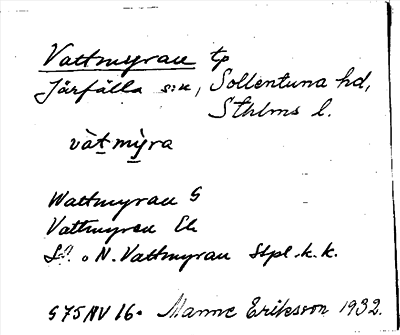 Vattmyran tp
Järfälla s:n, Sollentuna hd,
Sthlms l.
vàt mỳra
Wattmyran G
Vattmyran Ek
S. o N. Vattmyran Stpl. k. k.
G 75 NV 16. Manne Eriksson 1932.